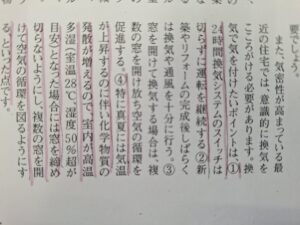 要でしょう。
また、気密性が高まっている最
近の住宅では、意識的に換気を
こころがける必要があります。換
気で気を付けたいポイントは、①
24時間換気システムのスイッチは
切らずに運転を継続する②新
築やリフォームの完成後にはしばらく
は換気や通風を十分に行う。③
窓を開けて換気する場合は、複
数の窓を開け放ち空気の循環を
促進する。④特に真夏には気温
が上昇するのに伴い化学物質の
発散が増えるので、室内が高温
多湿(室温28℃、湿度50%超が
目安)となった場合には窓を締め
切らないようにし、複数の窓を開
けて空気の循環を図るようにす
る、といった点です。